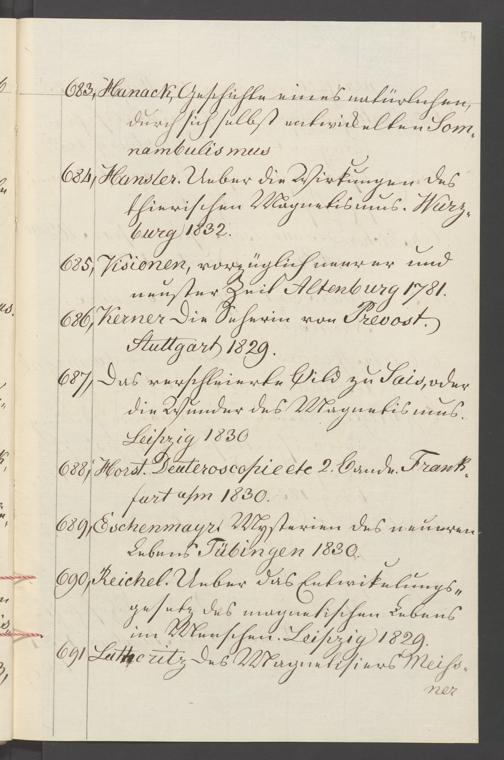 54
683, Hanack, Geschichte eines natürlichen,
durch sich selbst entwickelten Som-
nambulismus
684, Hansler. Ueber die Wirkungen des
thierischen Magnetismus. Würz-
burg 1832.
685, Visionen, vorzüglich neuerer und
neuster Zeit Altenburg 1781.
686, Kerner Die Seherin von Prevost.
Stuttgart 1829.
687, Das verschleierte Bild zu Sais, oder
die Wunder des Magnetismus.
Leipzig 1830
688, Horst. Deuteroscopie etc 2. Bände. Frank-
furt a/m 1830.
689, Eschenmayr. Mysterien des neueren
Lebens Tübingen 1830.
690, Reichel. Ueber das Entwikelungs-
gesetz des magnetischen Lebens
im Menschen. Leipzig 1829.
691 des Magnetisiers Meiss-
ner